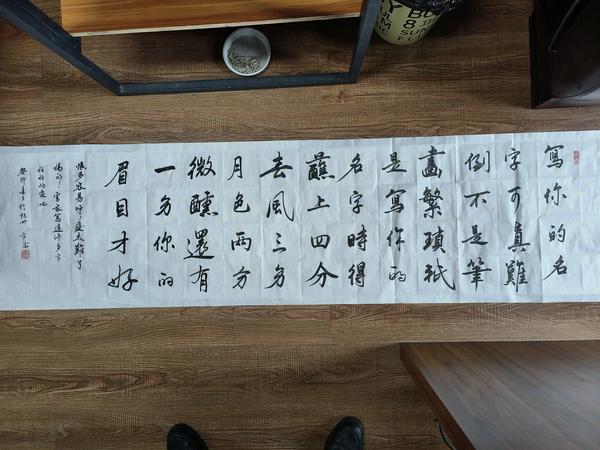 寫你的名
字可真難
倒不是筆
畫繁瑣祇
是寫你的
名字時得
蘸上四分
春風三分
月色两分
微醺還有
一分你的
眉目才好
太難了
癸卯